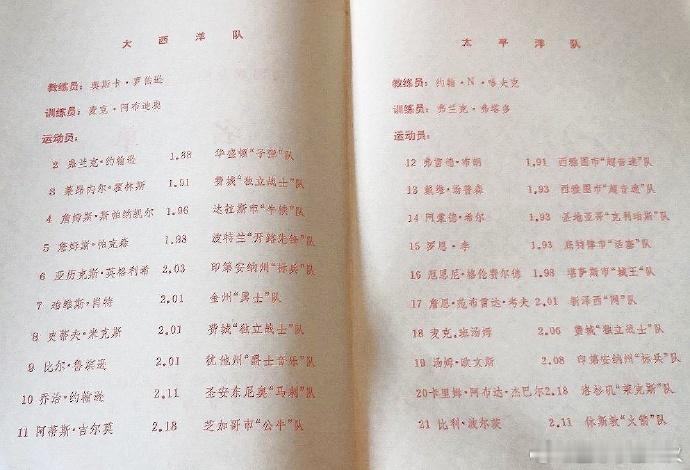 大西洋队
教练员：奥斯卡·罗伯逊
训练员：麦克·阿布迪奥
运动员：
2 弗兰克·约翰逊 1.88 华盛顿“子弹”队
3 莱昂内尔·霍林斯 1.91 费城“独立战士”队
4 詹姆斯·斯帕纳凯尔 1.96 达拉斯市“牛犊”队
5 詹姆斯·帕克森 1.98 波特兰“开路先锋”队
6 亚历克斯·英格利希 2.03 印第安纳州“标兵”队
7 珀维斯·肖特 2.01 金州“勇士”队
8 史蒂夫·米克斯 2.01 费城“独立战士”队
9 比尔·鲁滨逊 2.01 犹他州“爵士音乐”队
10 乔治·约翰逊 2.11 圣安东尼奥“马刺”队
11 阿蒂斯·吉尔莫 2.18 芝加哥市“公牛”队
太平洋队
教练员：约翰·N·哈夫克
训练员：弗兰克·弗塔多
运动员：
12 弗雷德·布朗 1.91 西雅图市“超音速”队
13 戴维·汤普森 1.93 西雅图市“超音速”队
14 阿蒙德·希尔 1.93 圣地亚哥“克利珀斯”队
15 罗恩·李 1.93 底特律市“活塞”队
16 厄恩尼·格伦费尔德 1.98 堪萨斯市“城王”队
17 詹恩·范布雷达·考夫 2.01 新泽西“网”队
18 麦克·班汤姆 2.06 费城“独立战士”队
19 汤姆·欧文斯 2.08 印第安纳州“标兵”队
20 卡里姆·阿布达·杰巴尔 2.18 洛杉矶“莱克斯”队
21 比利·波尔茨 2.11 休斯敦“火箭”队